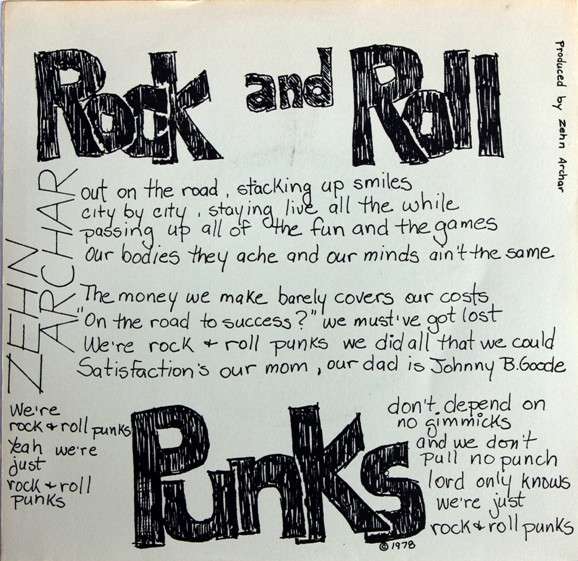 Rock and Roll
Produced by Zehn Archar
ZEHN
ARCHAR
out on the road, stacking up smiles
city by city, staying live all the while
passing up all of the fun and the games
Our bodies they ache and our minds ain't the same
The money we make barely covers our costs
"On the road to success?" we must've got lost
We're rock + roll punks we did all that we could
Satisfaction's our mom, our dad is Johnny B. Goode
We're
rock + roll punks
Yeah we're
just
rock + roll
punks
Punks
don't depend on
no gimmicks
and we don't
pull no punch
lord only knows
we're just
rock + roll punks
© 1978